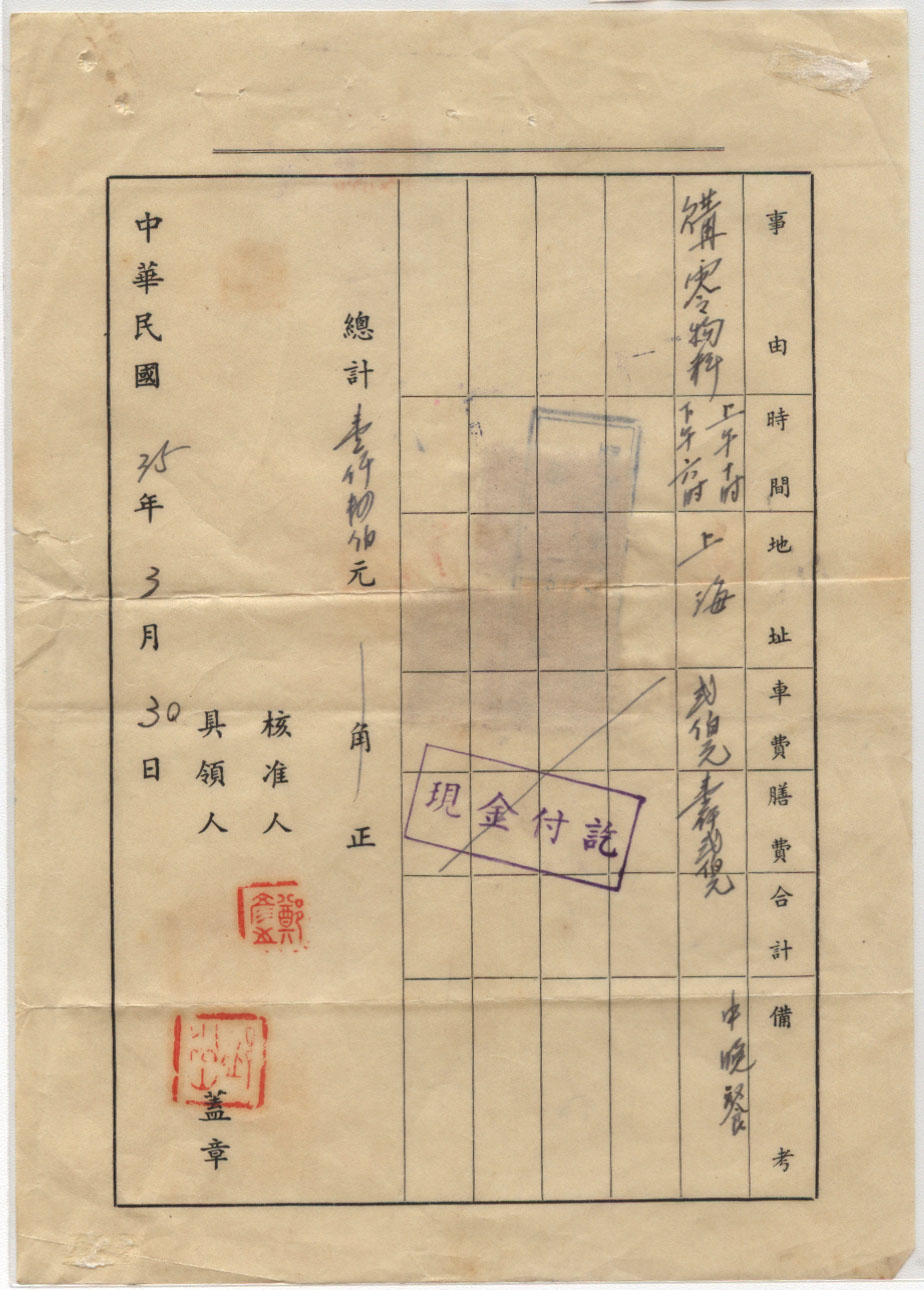 事由
時間
地址
車費
膳費
合計
備考
購零物料
上午十时
下午六时
上海
貳佰元
壹仟貳佰元
中晚餐
現金付訖
總計壹仟肆佰元
角正
核准人
鄭
具領人
蓋章
中華民國35年3月30日